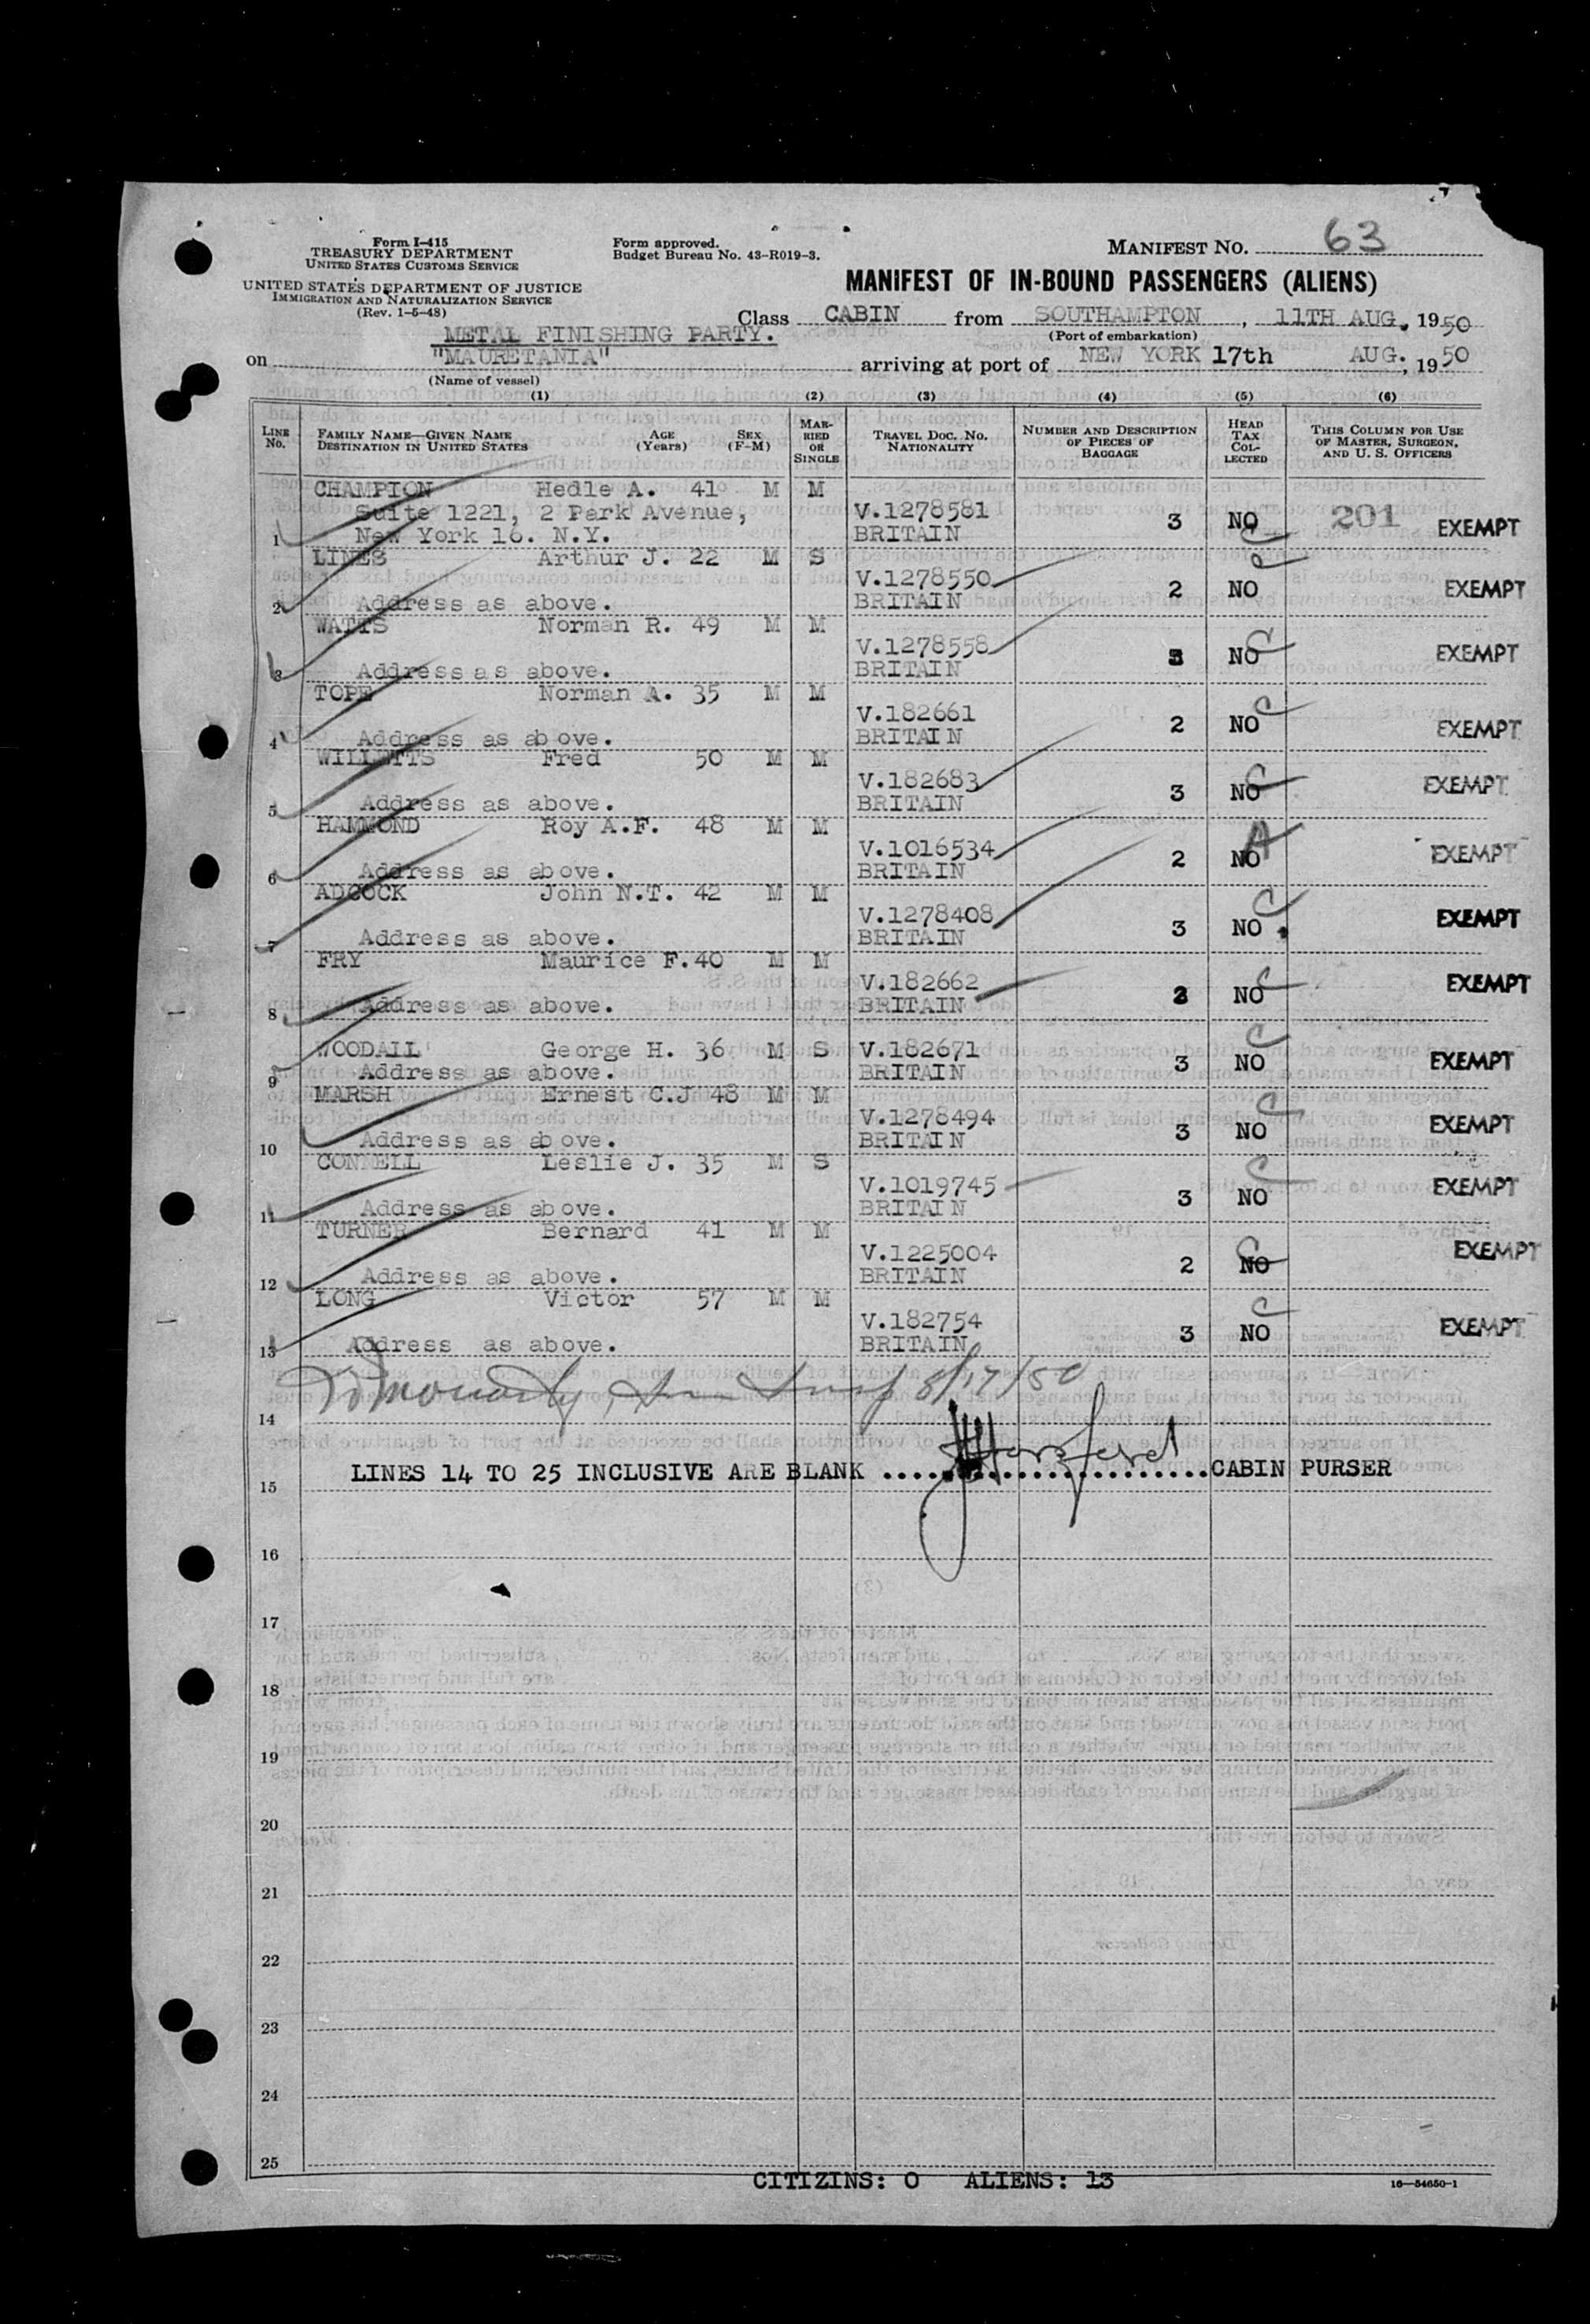 Form I-415
TREASURY DEPARTMENT
UNITED STATES CUSTOMS SERVICE
UNITED STATES DEPARTMENT OF JUSTICE
IMMIGRATION AND NATURALIZATION SERVICE
(Rev. 1-5-48)
Form approved.
Budget Bureau No. 43-R019-3.
MANIFEST NO. 63
MANIFEST OF IN-BOUND PASSENGERS (ALIENS)
Class CABIN from SOUTHAMPTON, 11TH AUG. 1950
(Port of embarkation)
METAL FINISHING PARTY.
on "MAURETANIA" arriving at port of NEW YORK 17th AUG. , 1950
(Name of vessel)
(1) (2) (3) (4) (5) (6)
LINE No. FAMILY NAME—GIVEN NAME DESTINATION IN UNITED STATES AGE (Years) SEX (F-M) MARRIED OR SINGLE TRAVEL DOC. NO. NATIONALITY NUMBER AND DESCRIPTION OF PIECES OF BAGGAGE HEAD TAX COLLECTED THIS COLUMN FOR USE OF MASTER, SURGEON, AND U. S. OFFICERS
CHAMPION Hedle A. 41 M M
Suite 1221, 2 Park Avenue, V.1278581
1 New York 16. N.Y. BRITAIN 3 NO 201 EXEMPT
LINES Arthur J. 22 M S
V.1278550
2 Address as above. BRITAIN 2 NO EXEMPT
WATTS Norman R. 49 M M
V.1278558
3 Address as above. BRITAIN 3 NO EXEMPT
TOPE Norman A. 35 M M
V.182661
4 Address as above. BRITAIN 2 NO EXEMPT
WILLETTS Fred 50 M M
V.182683
5 Address as above. BRITAIN 3 NO EXEMPT
HAMMOND Roy A.F. 48 M M
V.1016534
6 Address as above. BRITAIN 2 NO EXEMPT
ADCOCK John N.T. 42 M M
V.1278408
7 Address as above. BRITAIN 3 NO EXEMPT
FRY Maurice F. 40 M M
V.182662
8 Address as above. BRITAIN NO EXEMPT
WOODALL George H. 36 M S V.182671
9 Address as above. BRITAIN 3 NO EXEMPT
MARSH Ernest C.J 48 M M
V.1278494
10 Address as above. BRITAIN 3 NO EXEMPT
CONNELL Leslie J. 35 M S
V.1019745
11 Address as above. BRITAIN 3 NO EXEMPT
TURNER Bernard 41 M M
V.1225004
12 Address as above. BRITAIN 2 NO EXEMPT
LONG Victor 57 M M
V.182754
13 Address as above. BRITAIN 3 NO EXEMPT
8/17/50
14
LINES 14 TO 25 INCLUSIVE ARE BLANK ........................CABIN PURSER
15
16
17
18
19
20
21
22
23
24
25
CITIZINS: 0 ALIENS: 13
16—54650-1